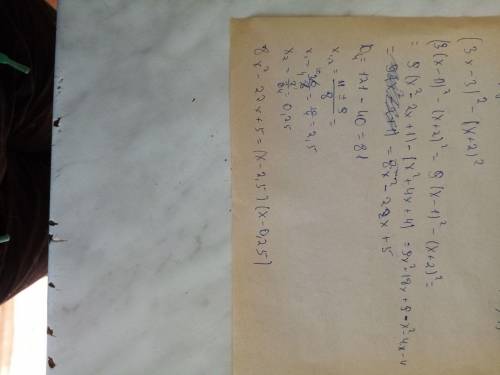 (3x-3)² - (x+2)²
(3(x-1))² - (x+2)² = 9(x-1)² - (x+2)² =
= 9(x²-2x+1) - (x²+4x+4) = 9x²-18x+9-x²-4x-4
= 8x² - 22x + 5
D/4 = 121 - 40 = 81
x₁,₂ = (11 ± 9)/8 =
x₁ = 20/8 = 2,5
x₂ = 2/8 = 0,25
8x² - 22x + 5 = (x-2,5)(x-0,25)